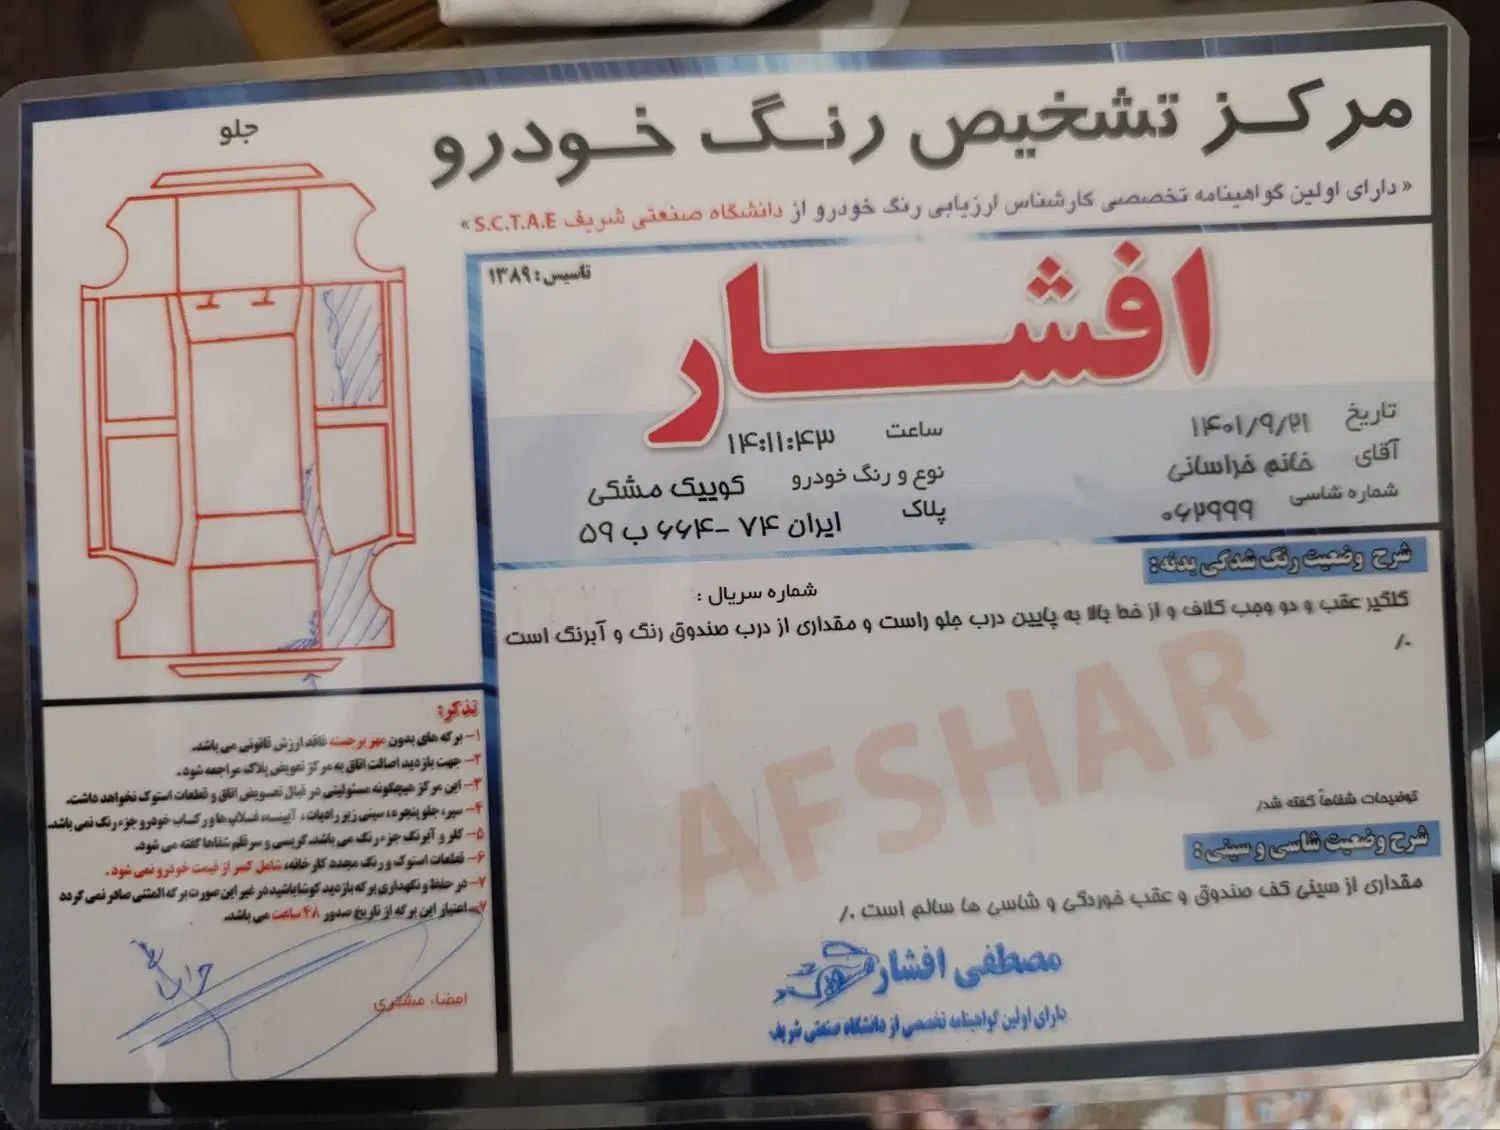 مرکز تشخیص رنگ خودرو
« دارای اولین گواهینامه تخصصی کارشناس ارزیابی رنگ خودرو از دانشگاه صنعتی شریف S.C.T.A.E »
تاسیس: ۱۳۸۹
افشار
تاریخ ۱۴۰۱/۹/۲۱
ساعت ۱۴:۱۱:۴۳
آقای خانم خراسانی
نوع و رنگ خودرو کوییک مشکی
شماره شاسی ۰۶۲۹۹۹
پلاک ایران ۷۴ -۶۶۴ ب ۵۹
شرح وضعیت رنگ شدگی بدنه:
شماره سریال :
گلگیر عقب و دو وجب کلاف و از خط بالا به پایین درب جلو راست و مقداری از درب صندوق رنگ و آبرنگ است
./
AFSHAR
توضیحات شفاهاً گفته شد/
شرح وضعیت شاسی و سینی :
مقداری از سینی کف صندوق و عقب خوردگی و شاسی ها سالم است ./
مصطفی افشار
دارای اولین گواهینامه تخصصی از دانشگاه صنعتی شریف
جلو
تذکر:
۱- برگه های بدون مهر برجسته فاقد ارزش قانونی می باشد.
۲- جهت بازدید اصالت اتاق به مرکز تعویض پلاک مراجعه شود.
۳- این مرکز هیچگونه مسئولیتی در قبال تعویض اتاق و قطعات استوک نخواهد داشت.
۴- سپر، جلو پنجره، سینی زیر رادیات، آیینه، فلاپ ها و رکاب خودرو جزء رنگ نمی باشد.
۵- کلر و آبرنگ جزء رنگ می باشد. گریسی و سرقلم شفاها گفته می شود.
۶- قطعات استوک و رنگ مجدد کارخانه، شامل کسر از قیمت خودرو نمی شود.
۷- در حفظ و نگهداری برگه بازدید کوشا باشید در غیر این صورت برگه المثنی صادر نمی گردد
۷- اعتبار این برگه از تاریخ صدور ۴۸ ساعت می باشد.
امضاء مشتری